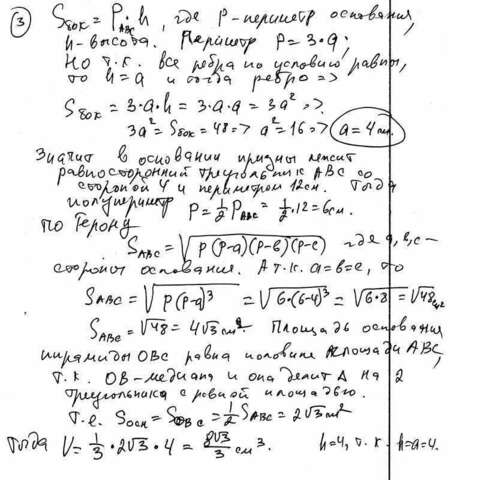 ③ Sбок = P_ABC · h, где P-периметр основания,
h-высота. Периметр P = 3·a;
Но т.к. все ребра по условию равны,
то h=a и тогда ребро =>
Sбок = 3·a·h = 3·a·a = 3a² =>
3a² = Sбок = 48 => a² = 16 => a = 4 см.
Значит в основании призмы лежит
равносторонний треугольник ABC со
стороной 4 и периметром 12см. Тогда
полупериметр p = 1/2 P_ABC = 1/2·12 = 6см.
По Герону
S_ABC = √(p(p-a)(p-b)(p-c)) где a, b, c -
стороны основания. А т.к. a=b=c, то
S_ABC = √(p(p-a)³) = √(6·(6-4)³) = √(6·8) = √48 см²
S_ABC = √48 = 4√3 см². Площадь основания
пирамиды OBC равна половине площади ABC,
т.к. OB-медиана и она делит Δ на 2
треугольника с равной площадью.
Т.е. Sосн = S_OBC = 1/2 S_ABC = 2√3 см²
Тогда V = 1/3 · 2√3 · 4 = 8√3/3 см³. h=4, т.к. h=a=4.